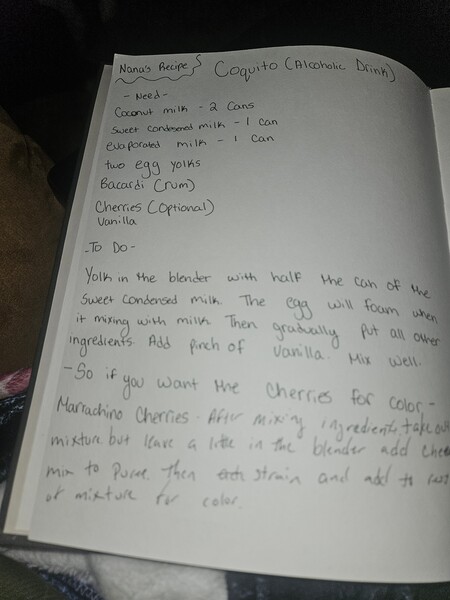 Nana's Recipe
Coquito (Alcoholic Drink)
- Need -
Coconut milk - 2 Cans
Sweet Condesened milk - 1 Can
evaporated milk - 1 Can
two egg yolks
Bacardi (rum)
Cherries (Optional)
Vanilla
- To Do -
Yolk in the blender with half the can of the
Sweet Condensed milk. The egg will foam when
it mixing with milk. Then gradually put all other
ingredients. Add pinch of Vanilla. Mix well.
- So if you want the cherries for color -
Marrachino Cherries. After mixing ingredients, take out
mixture but leave a little in the blender add
mix to Then strain and add to rest
of mixture for color.